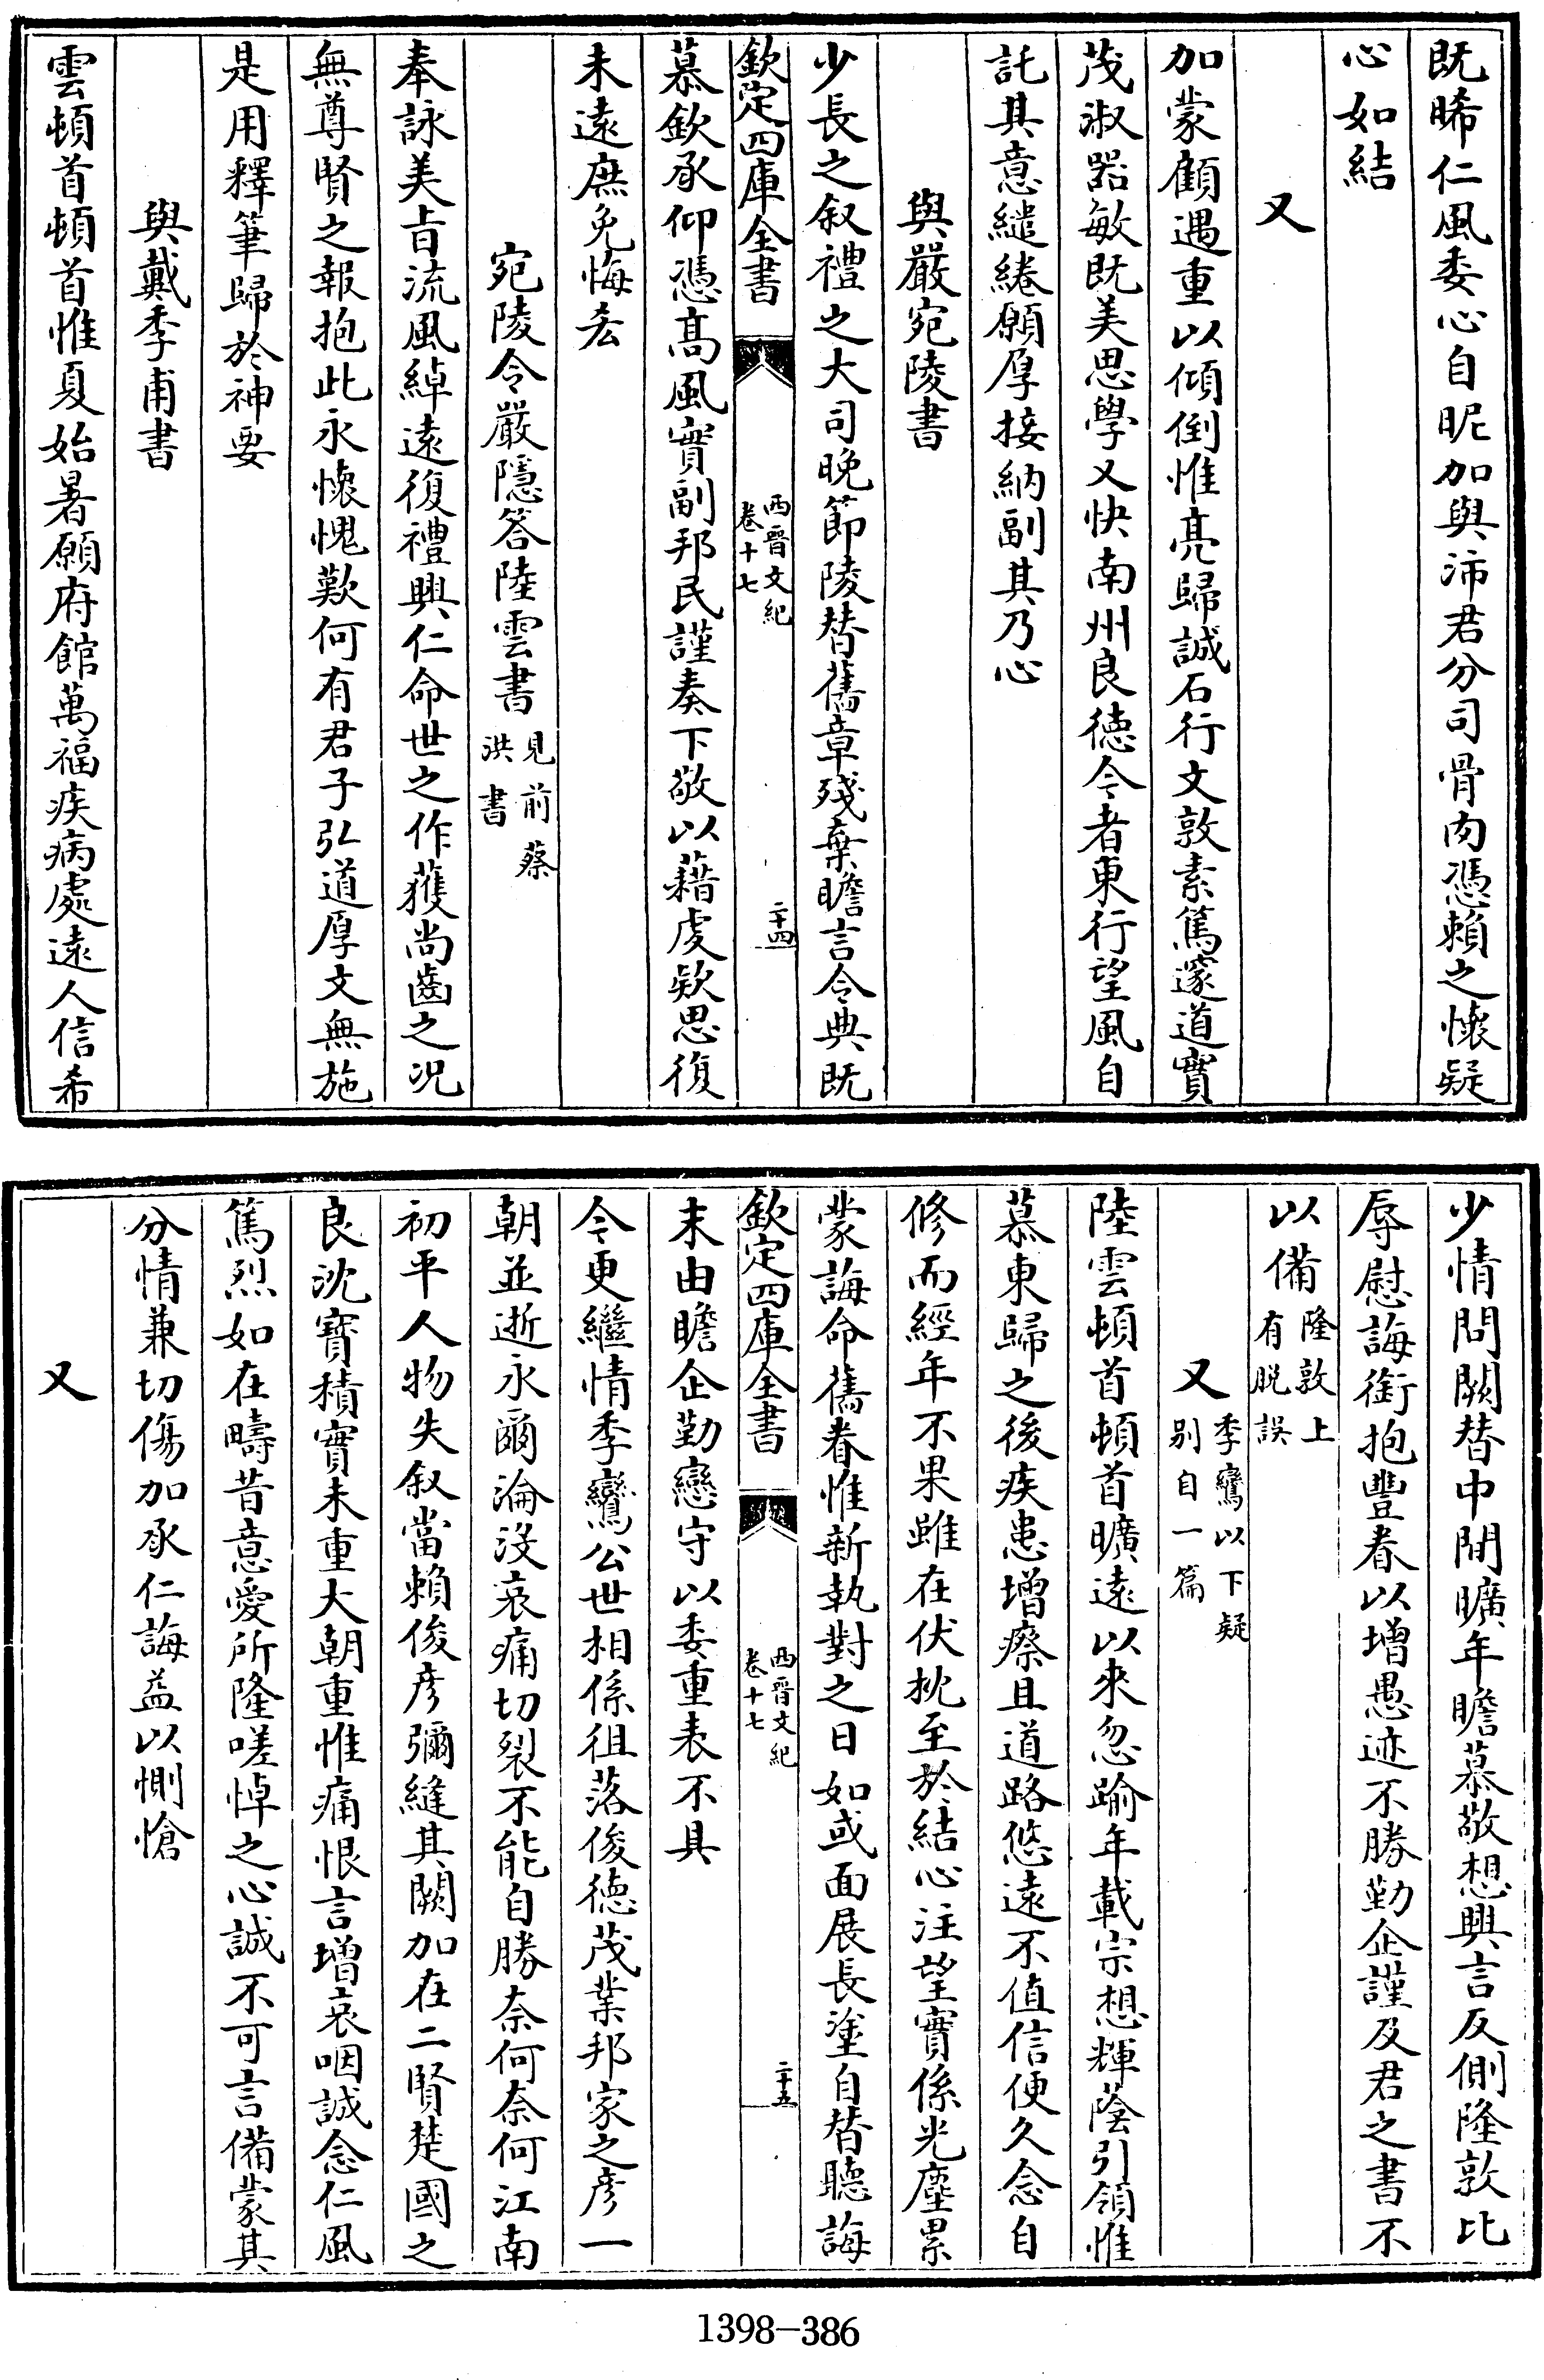 既睎仁風委心自昵加與沛君分司骨肉憑賴之懷疑
心如結
又
加蒙顧遇重以傾倒惟亮歸誠石行文敦素篤邃道實
茂淑器敏既美思學又快南州良德今者東行望風自
託其意繾綣願厚接納副其乃心
與嚴宛陵書
少長之叙禮之大司晚節陵替舊章殘棄瞻言令典既
欽定四庫全書
西晉文紀
卷十七
二十四
慕欽承仰憑髙風實副邦民謹奏下敬以藉虔欵思復
未遠庶免悔叅
宛陵令嚴隱答陸雲書見前蔡
洪書
奉詠美旨流風綽遠復禮興仁命世之作獲尚齒之况
無尊賢之報抱此永懷愧歎何有君子弘道厚文無施
是用釋筆歸於神要
與戴季甫書
雲頓首頓首惟夏始暑願府館萬福疾病處遠人信希
少情問闕替中間曠年瞻慕敬想興言反側隆敦比
辱慰誨銜抱豐眷以增愚迹不勝勤企謹及君之書不
以備隆敦上
有脱誤
又季鸞以下疑
别自一篇
陸雲頓首頓首曠遠以來忽踰年載宗想輝蔭引領惟
慕東歸之後疾患增瘵且道路悠遠不值信便久念自
修而經年不果雖在伏枕至於結心注望實係光塵累
蒙誨命舊眷惟新執對之日如或面展長塗自替聽誨
欽定四庫全書
西晉文紀
卷十七
二十五
末由瞻企勤戀守以委重表不具
令更繼情季鸞公世相係徂落俊徳茂業邦家之彦一
朝並逝永爾淪沒哀痛切裂不能自勝奈何奈何江南
初平人物失叙當賴俊彦彌縫其闕加在二賢楚國之
良沈寳積實未重大朝重惟痛恨言增哀咽誠念仁風
篤烈如在疇昔意愛所隆嗟悼之心誠不可言備蒙其
分情兼切傷加承仁誨益以惻愴
又
1398-386